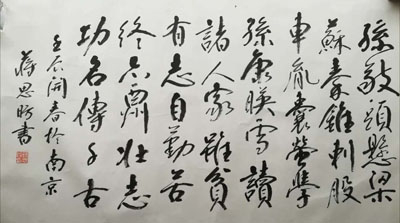 孫敬頭懸梁
蘇秦錐刺股
車胤囊螢學
孫康映雪讀
諸人家雖貧
有志自勤苦
終不。壯志
功名傳千古
壬寅開春於南京
蔣思盼書